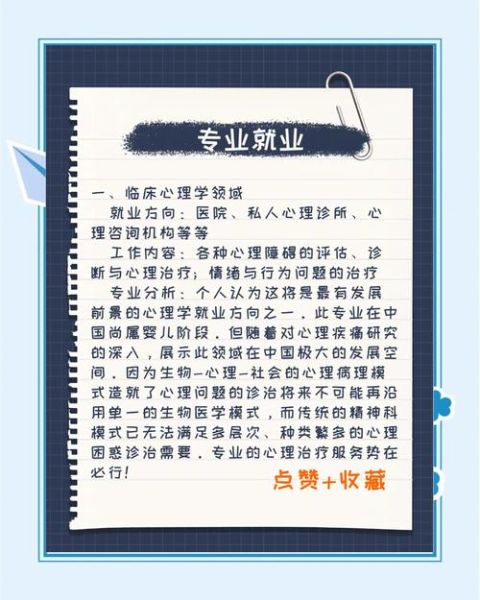 专业就业
一、临床心理学领域
就业方向：医院、私人心理诊所、心
理咨询机构等等
工作内容：各种心理障碍的评估、诊
断与心理治疗；情绪与行为问题的治疗
专业分析：个人认为这将是最有发展
前景的心理学就业方向之一．此专业在中
国尚属婴儿阶段．但随着对心理疾痛研究
的深入，展示此领域在中国极大的发展空
间．因为生物-心理-社会的心理病理模
式造就了心理问题的诊治将来不可能再沿
用单一的生物医学模式，而传统的精神科
模式已无法满足多层次、种类繁多的心理
困惑诊治需要．专业的心理治疗服务势在
必行！
点赞+收藏